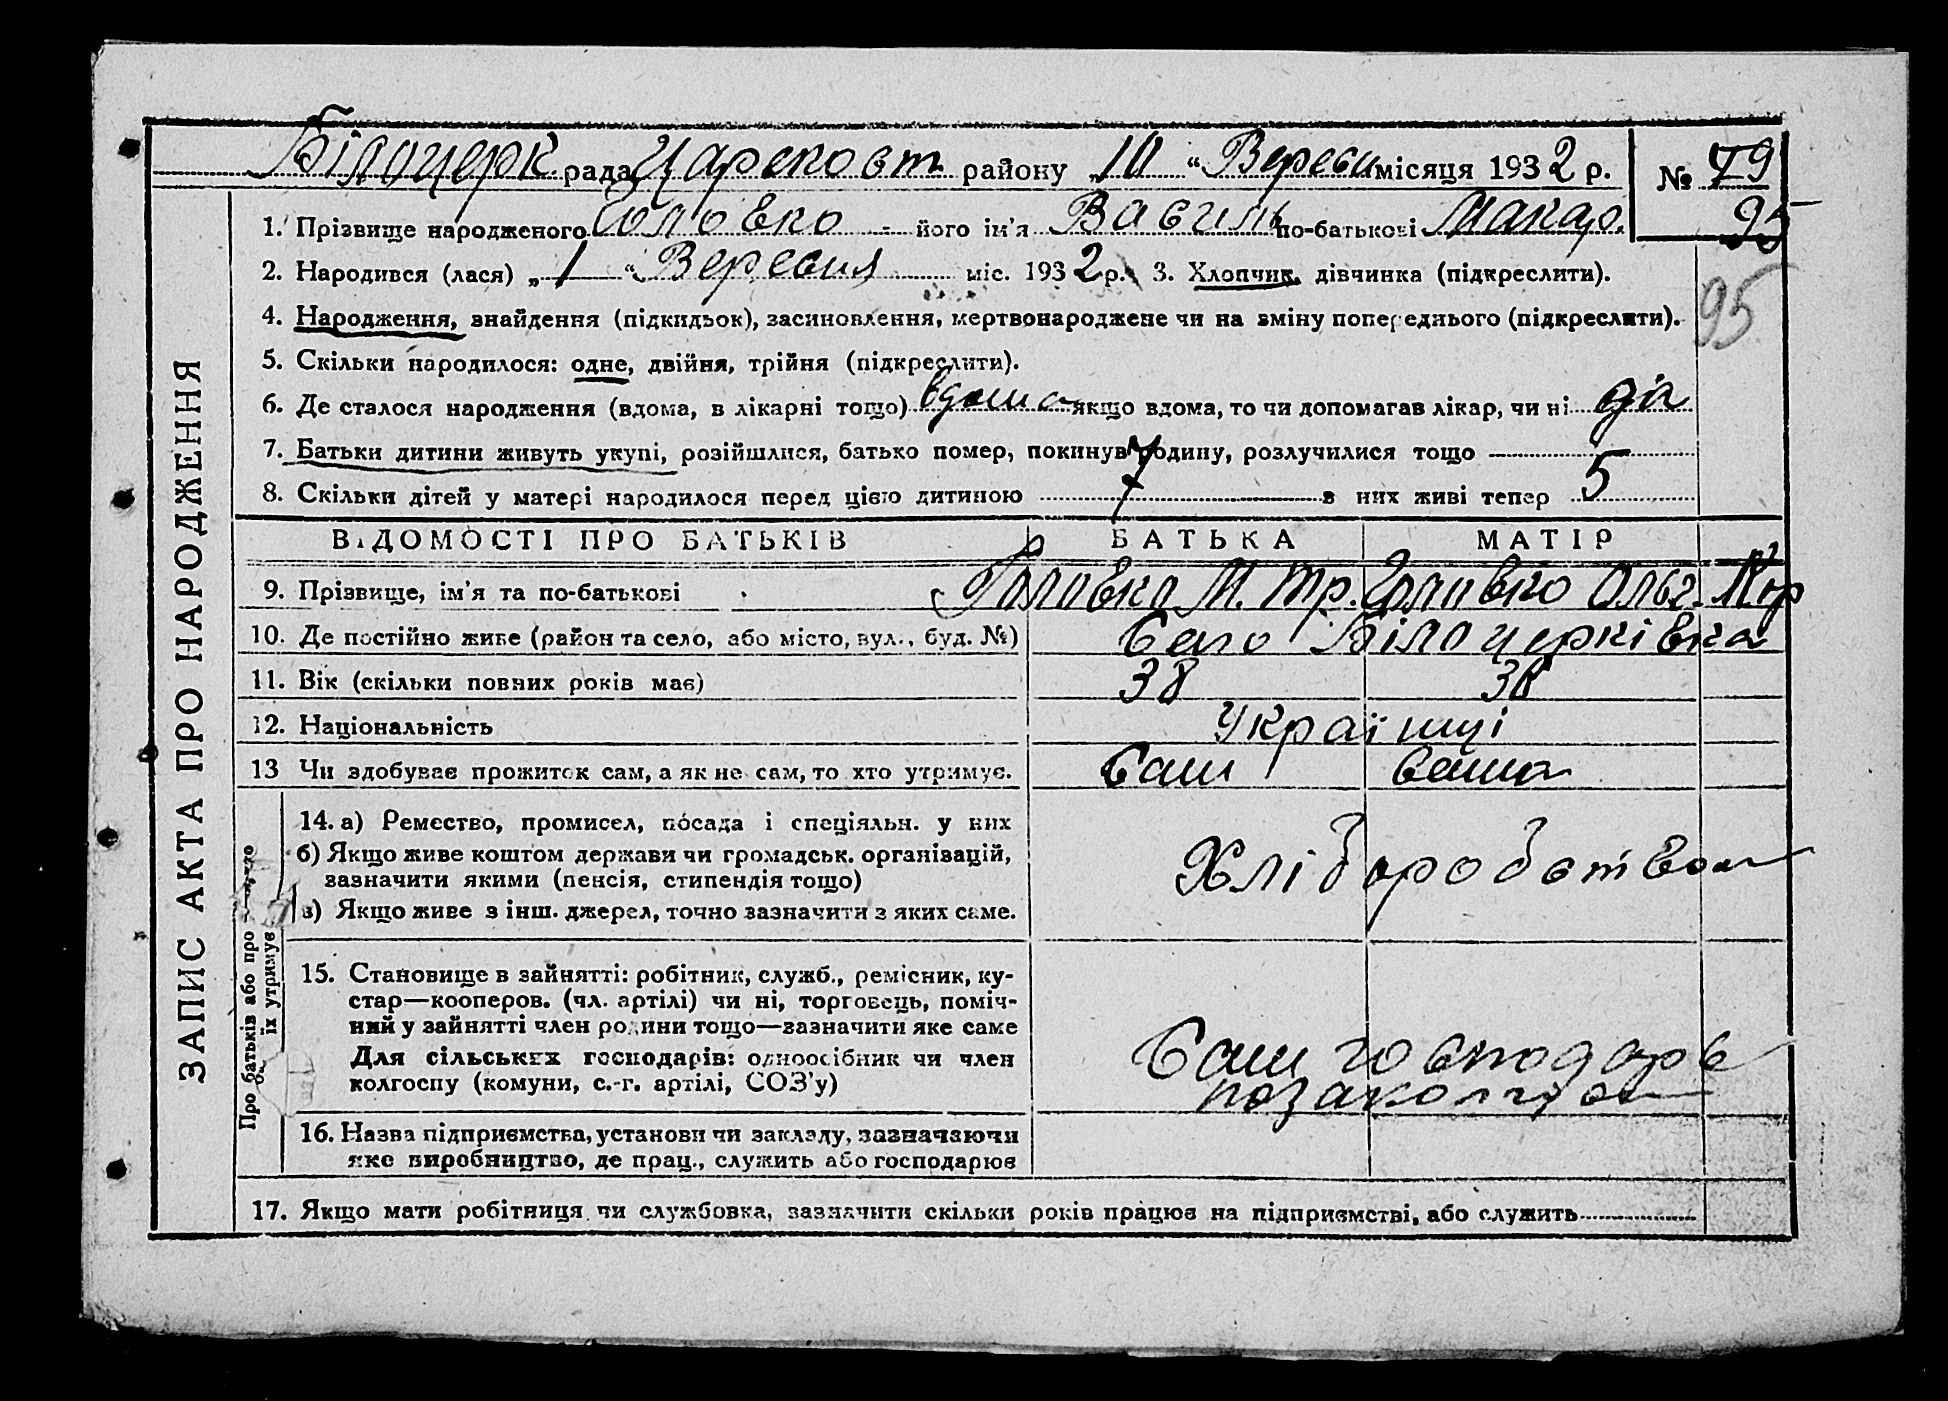 Білоцерк. рада Царскост району „10“ Вересн місяця 1932 р. № 79
95
1. Прізвище народженого Головко його ім'я Василь по-батькові Макар.
2. Народився (лася) „1“ Вересня міс. 1932 р. 3. Хлопчик, дівчинка (підкреслити).
95
4. Народження, знайдення (підкидьок), засиновлення, мертвонароджене чи на зміну попереднього (підкреслити).
5. Скільки народилося: одне, двійня, трійня (підкреслити).
6. Де сталося народження (вдома, в лікарні тощо) вдома якщо вдома, то чи допомагав лікар, чи ні
7. Батьки дитини живуть укупі, розійшлися, батько помер, покинув родину, розлучилися тощо
8. Скільки дітей у матері народилося перед цією дитиною 7 в них живі тепер 5
ЗАПИС АКТА ПРО НАРОДЖЕННЯ
ВІДОМОСТІ ПРО БАТЬКІВ БАТЬКА МАТІР
9. Прізвище, ім'я та по-батькові Головко М. Тр. Головко Ольг. Кор
10. Де постійно живе (район та село, або місто, вул., буд. №) Село Білоцерківка
11. Вік (скільки повних років має) 38 38
12. Національність Українці
13 Чи здобуває прожиток сам, а як не сам, то хто утримує. Сам сама
Про батьків або про
їх утримує
14. а) Ремество, промисел, посада і спеціяльн. у них
б) Якщо живе коштом держави чи громадськ. організацій,
зазначити якими (пенсія, стипендія тощо)
в) Якщо живе з інш. джерел, точно зазначити з яких саме.
Хліборобством
15. Становище в зайнятті: робітник, служб., ремісник, ку-
стар—кооперов. (чл. артілі) чи ні, торговець, поміч-
ний у зайнятті член родини тощо—зазначити яке саме
Для сільських господарів: одноосібник чи член
колгоспу (комуни, с.-г. артілі, СОЗ'у)
Сам господарь
16. Назва підприємства, установи чи закладу, зазначаючи
яке виробництво, де прац., служить або господарює
17. Якщо мати робітниця чи службовка, зазначити скільки років працює на підприємстві, або служить